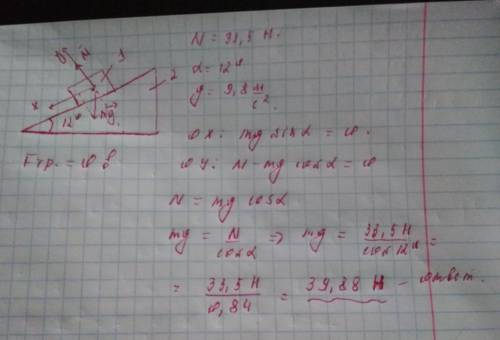 N = 33,5 Н.
α = 12°
y N 1
g = 9,8 м/с².
2
x
12° mg
ox: mg sin α = 0.
Fтр. = 0
oy: N - mg cos α = 0
N = mg cos α
mg = N/cos α => mg = 33,5 Н/cos 12° =
= 33,5 Н/0,84 = 39,88 Н - ответ.